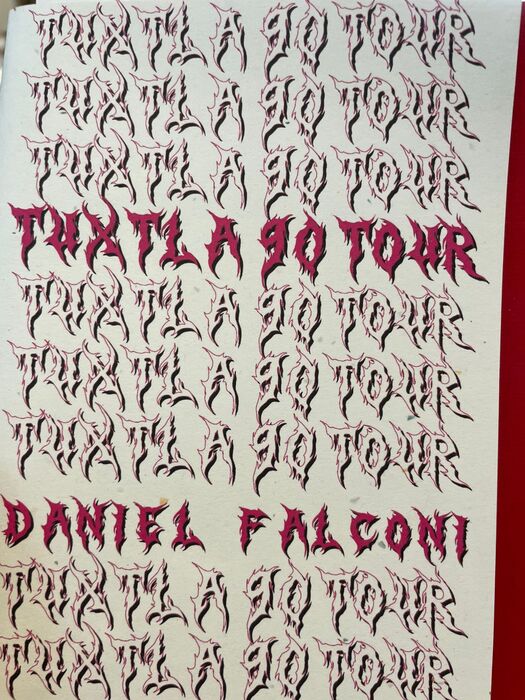 TUXTLA 90 TOUR
TUXTLA 90 TOUR
TUXTLA 90 TOUR
TUXTLA 90 TOUR
TUXTLA 90 TOUR
TUXTLA 90 TOUR
TUXTLA 90 TOUR
DANIEL FALCONI
TUXTLA 90 TOUR
TUXTLA 90 TOUR